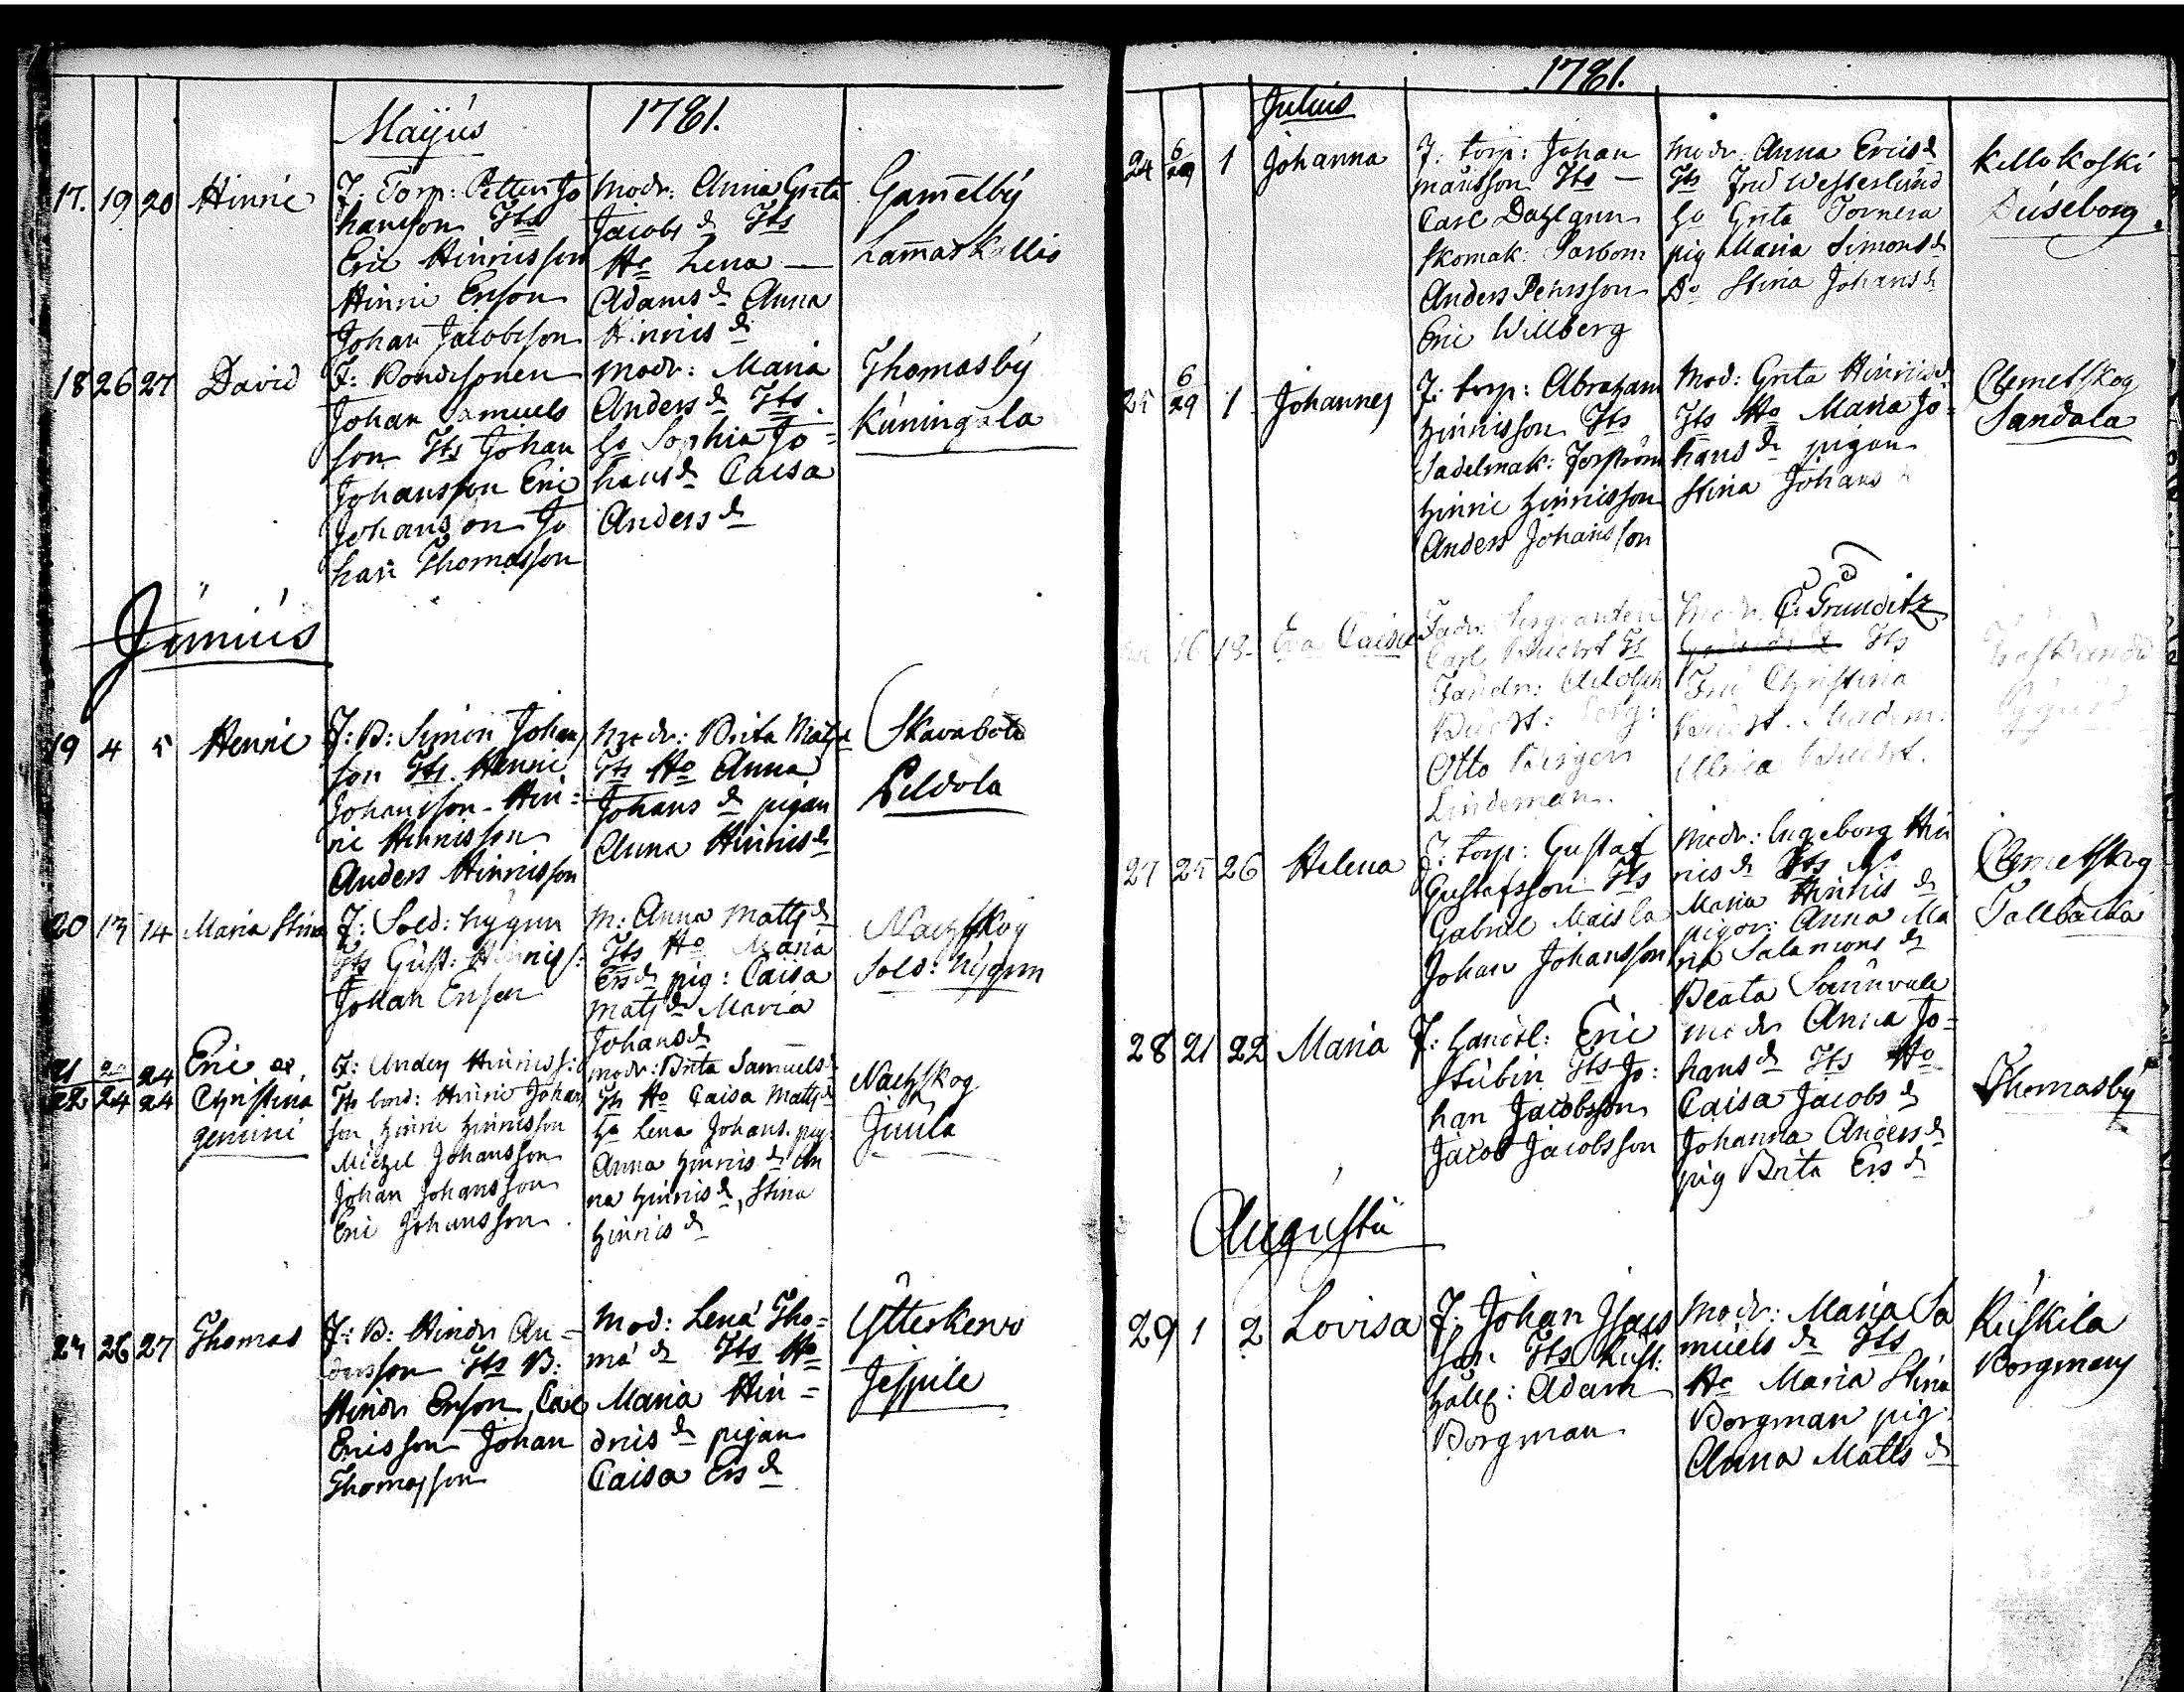 Majus 1781.
17. 19 20 Hinric
F: Torp: Petter Jo
hansson Tts
Eric Hinricsson
Hinric Ersson
Johan Jacobsson
Modr: Anna Greta
Jacobs dr Tts
Ho Lena —
Adams dr Anna
Hinrics dr
Gamelby
Lamaskallio
18 26 27 David
F: Bondesonen
Johan Samuels
son Tts Johan
Johansson Eric
Johansson Jo
han Thomasson
Modr: Maria
Anders dr Tts.
Ho Sophia Jo=
hans dr Caisa
Anders dr
Thomasby
Kuningala
Junius
19 4 5 Henric
F: B: Simon Johans
son Tts. Henric
Johansson - Hin=
ric Hinricsson
Anders Hinricsson
Modr: Brita Mats dr
Tts Ho Anna
Johans dr pigan
Anna Hinrics dr
Skavaböle
Peldola
20 13 14 Maria Stina
F: Sold: Nygren
Tts Gust: Hinrics:
Johan Ersson
M: Anna Matts dr
Tts Ho Maria
Ers dr pig: Caisa
Mats dr Maria
Johans dr
Nachskog
Sold: Nygren
21 24
22 24 24
Eric et
Christina
gemini
F: Anders Hinricss:
Tts bond: Hinric Johans
son Hinric Hinricsson
Michel Johansson
Johan Johansson
Eric Johansson
modr: Brita Samuels dr
Tts Ho Caisa Matts dr
Ho Lena Johans. pig:
Anna Hinrics dr An
na Hinrics dr, Stina
Hinrics dr
Nachskog
Juula
26 27 Thomas
F: B: Hindr An=
dersson Tts B:
Hindr Ersson, Carl
Ericsson Johan
Thomasson
Mod: Lena Tho=
ma dr Tts Ho
Maria Hin=
drics dr pigan
Caisa Ers dr
Ytterkervo
Jespile
1781.
Julius
24 6/29 1 Johanna
F: torp: Johan
Mansson Tts —
Carl Dahlgren
Skomak:
Anders Pehrsson
Eric Willberg
Modr: Anna Erics dr
Tts Fru Westerlund
Ho Greta Tornera
pig Maria Simons dr
Do Stina Johans dr
Kellokoski
Duseborg.
25 6/29 1 Johannes
F: torp: Abraham
Hinricsson Tts
Sadelmak: Forström
Hinric Hinricsson
Anders Johansson
Mod: Greta Hinrics dr
Tts Ho Maria Jo=
hans dr pigan
Stina Johans
Clemetskog
Sandala
16 18 Eva Caisa
Fadr: Sergeanten
Carl Tts
Fändr: Adolph
Otto
Lindeman.
Modr. C: Grunditz
Tts
Fru Christina
Madem:
Ulrica
27 25 26 Helena
F: torp: Gustaf
Gustafsson Tts
Gabriel Maisla
Johan Johansson
Modr: Ingeborg Hin
rics dr Tts Ho
Maria Hinrics dr
pigor: Anna Ma
ria Salamons dr
Beata
Clemetskog
Tallbacka
28 21 22 Maria
F: Eric
Stubin Tts Jo:
han Jacobsson
Jacob Jacobsson
modr Anna Jo=
hans dr Tts Ho
Caisa Jacobs dr
Johanna Anders dr
pig Brita Ers dr
Thomasby
Augusti
29 1 2 Lovisa
F: Johan Isacs
son Tts Rust:
håll: Adam
Borgman
Modr: Maria Sa
muels dr Tts
Ho Maria Stina
Borgman pig:
Anna Matts dr
Ruskila
Borgmans